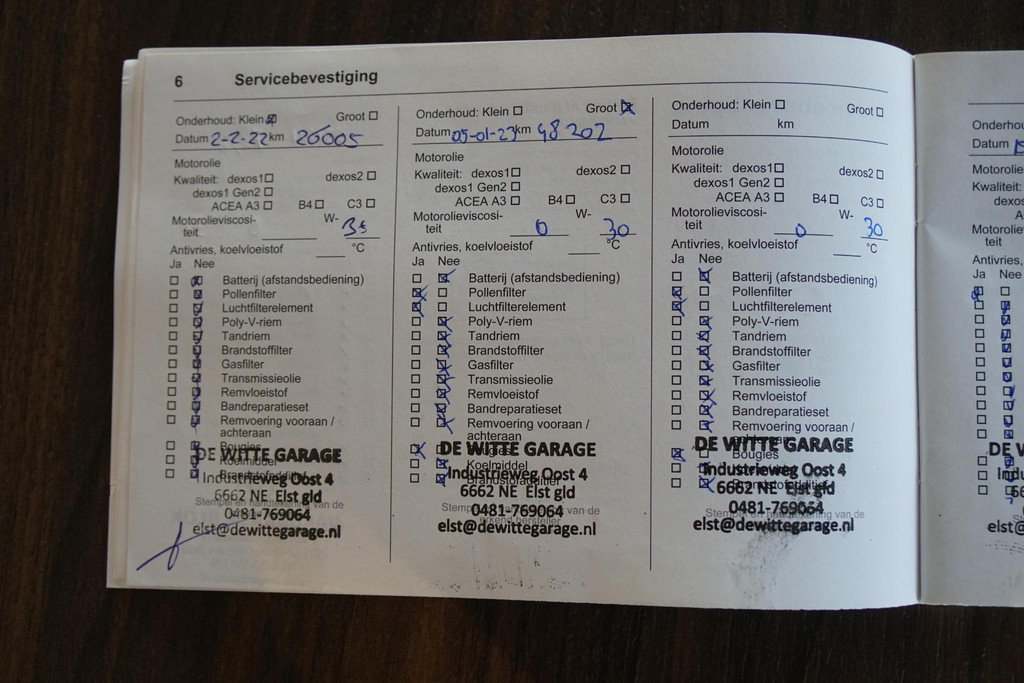 6 Servicebevestiging
Onderhoud: Klein Groot
Datum 2-2-22 km 26005
Motorolie
Kwaliteit: dexos1 dexos2
dexos1 Gen2
ACEA A3 B4 C3
Motorolieviscosi- W-
teit
Antivries, koelvloeistof °C
Ja Nee
Batterij (afstandsbediening)
Pollenfilter
Luchtfilterelement
Poly-V-riem
Tandriem
Brandstoffilter
Gasfilter
Transmissieolie
Remvloeistof
Bandreparatieset
Remvoering vooraan /
achteraan
Bougies
Koelmiddel
DE WITTE GARAGE
Industrieweg Oost 4
6662 NE Elst gld
0481-769064
elst@dewittegarage.nl
Onderhoud: Klein Groot
Datum 05-01-23 km 48202
Motorolie
Kwaliteit: dexos1 dexos2
dexos1 Gen2
ACEA A3 B4 C3
Motorolieviscosi- W-
teit 0 30
Antivries, koelvloeistof °C
Ja Nee
Batterij (afstandsbediening)
Pollenfilter
Luchtfilterelement
Poly-V-riem
Tandriem
Brandstoffilter
Gasfilter
Transmissieolie
Remvloeistof
Bandreparatieset
Remvoering vooraan /
achteraan
Bougies
Koelmiddel
Brandstofadditief
DE WITTE GARAGE
Industrieweg Oost 4
6662 NE Elst gld
0481-769064
elst@dewittegarage.nl
Onderhoud: Klein Groot
Datum km
Motorolie
Kwaliteit: dexos1 dexos2
dexos1 Gen2
ACEA A3 B4 C3
Motorolieviscosi- W-
teit 0 30
Antivries, koelvloeistof °C
Ja Nee
Batterij (afstandsbediening)
Pollenfilter
Luchtfilterelement
Poly-V-riem
Tandriem
Brandstoffilter
Gasfilter
Transmissieolie
Remvloeistof
Bandreparatieset
Remvoering vooraan /
achteraan
Bougies
DE WITTE GARAGE
Industrieweg Oost 4
6662 NE Elst gld
0481-769064
elst@dewittegarage.nl
Datum
Kwaliteit:
teit
Antivries,
Ja Nee